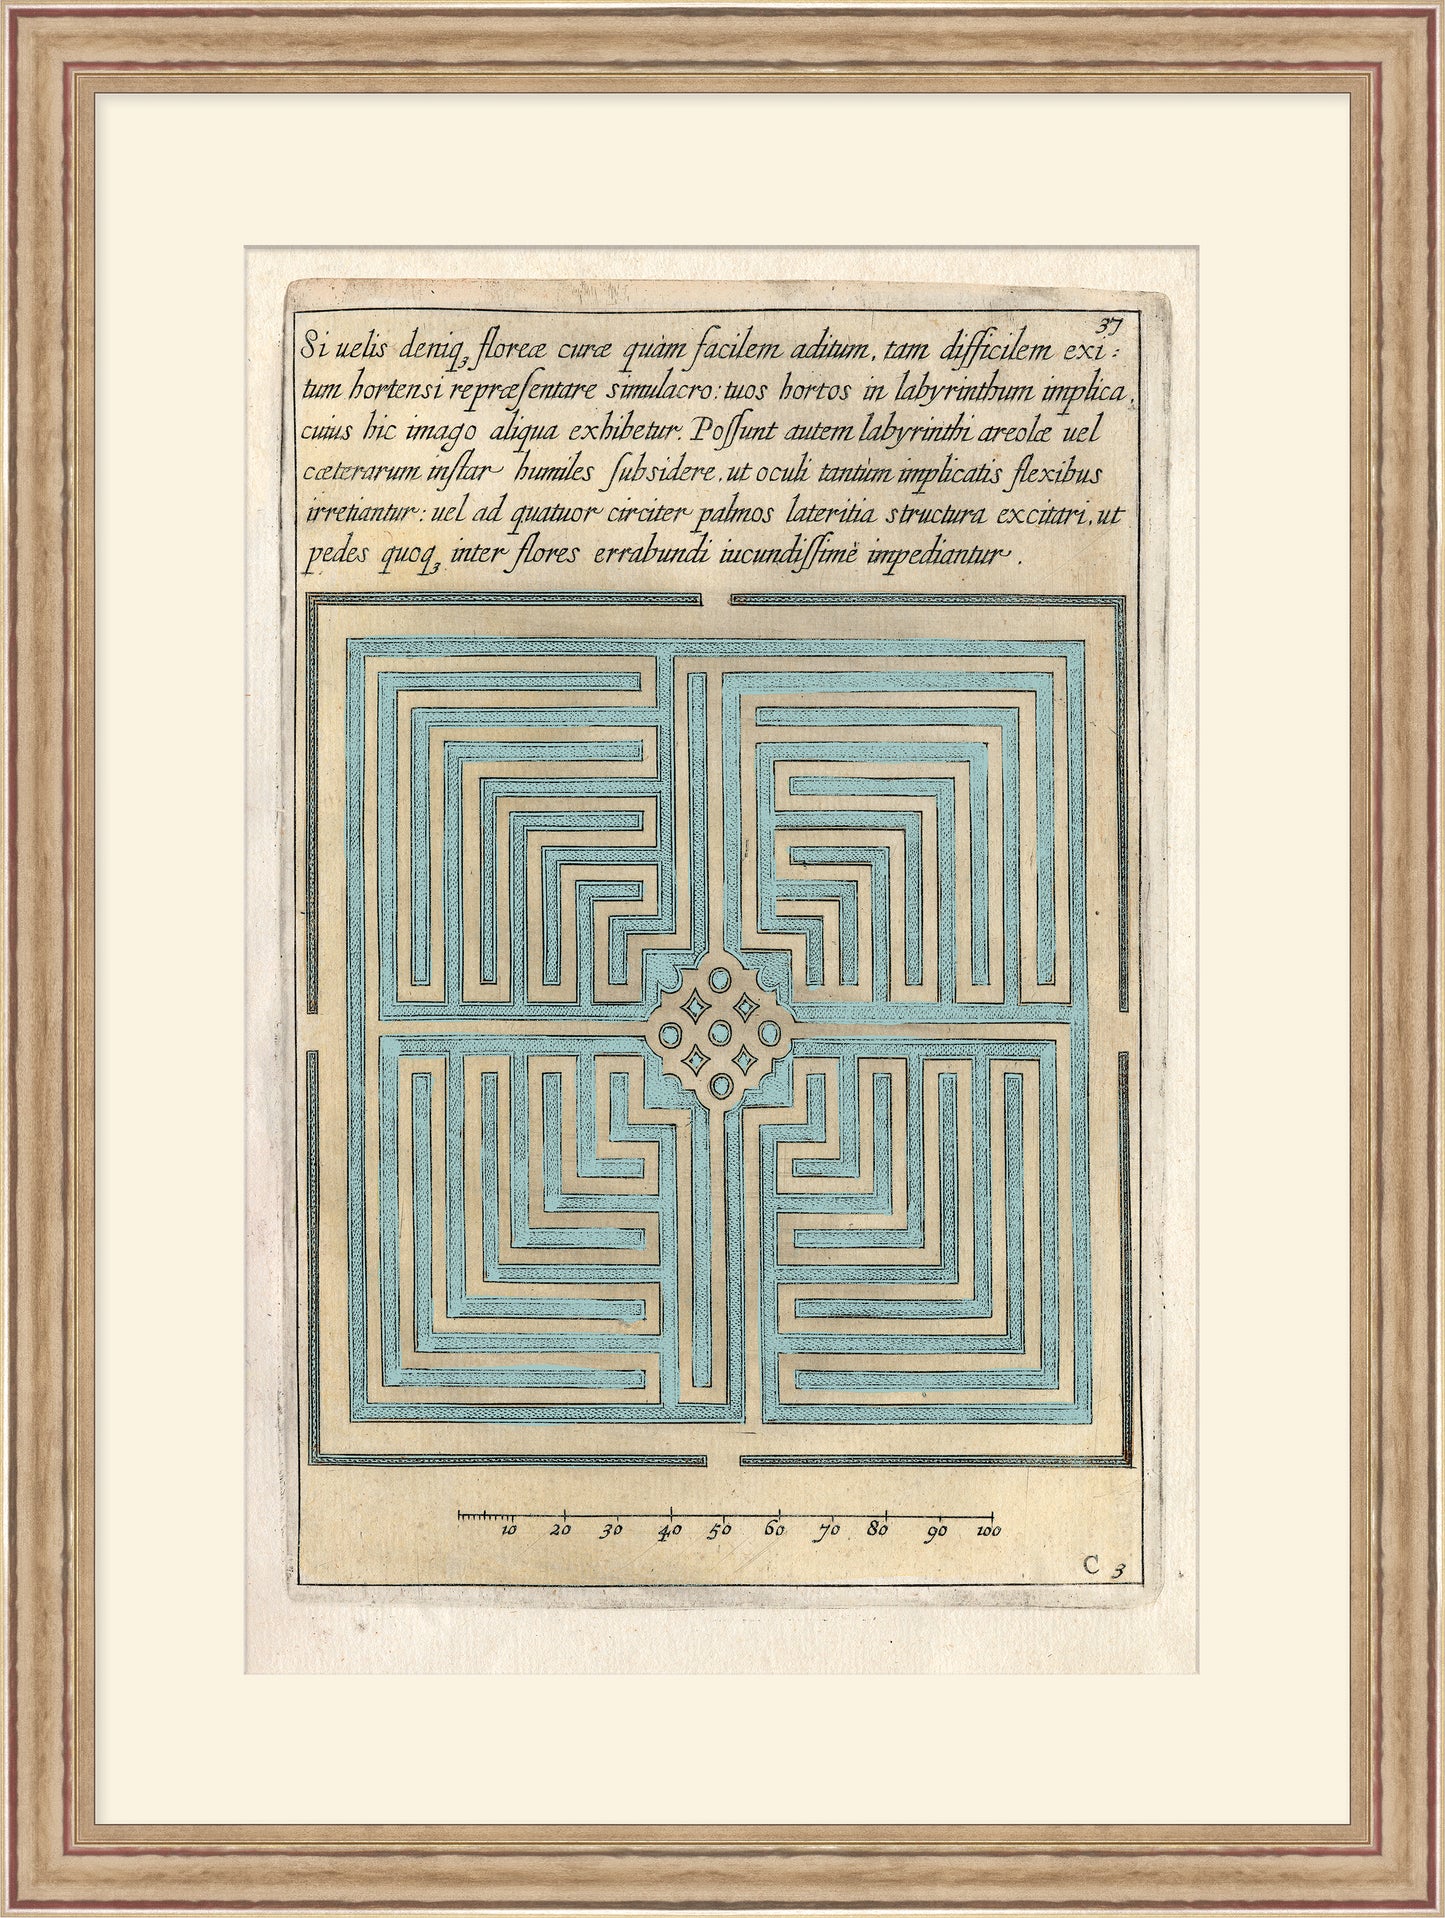 37
Si uelis deniq₃ floreæ curæ quàm facilem aditum, tam difficilem exi:
tum hortensi repræſentare simulacro: tuos hortos in labyrinthum implica,
cuius hic imago aliqua exhibetur. Poſſunt autem labyrinthi areolæ uel
cæterarum inſtar humiles ſubsidere, ut oculi tantùm implicatis flexibus
irretiantur: uel ad quatuor circiter palmos lateritia structura excitari, ut
pedes quoq₃ inter flores errabundi iucundiſſimè impediantur.
10 20 30 40 50 60 70 80 90 100
C 3